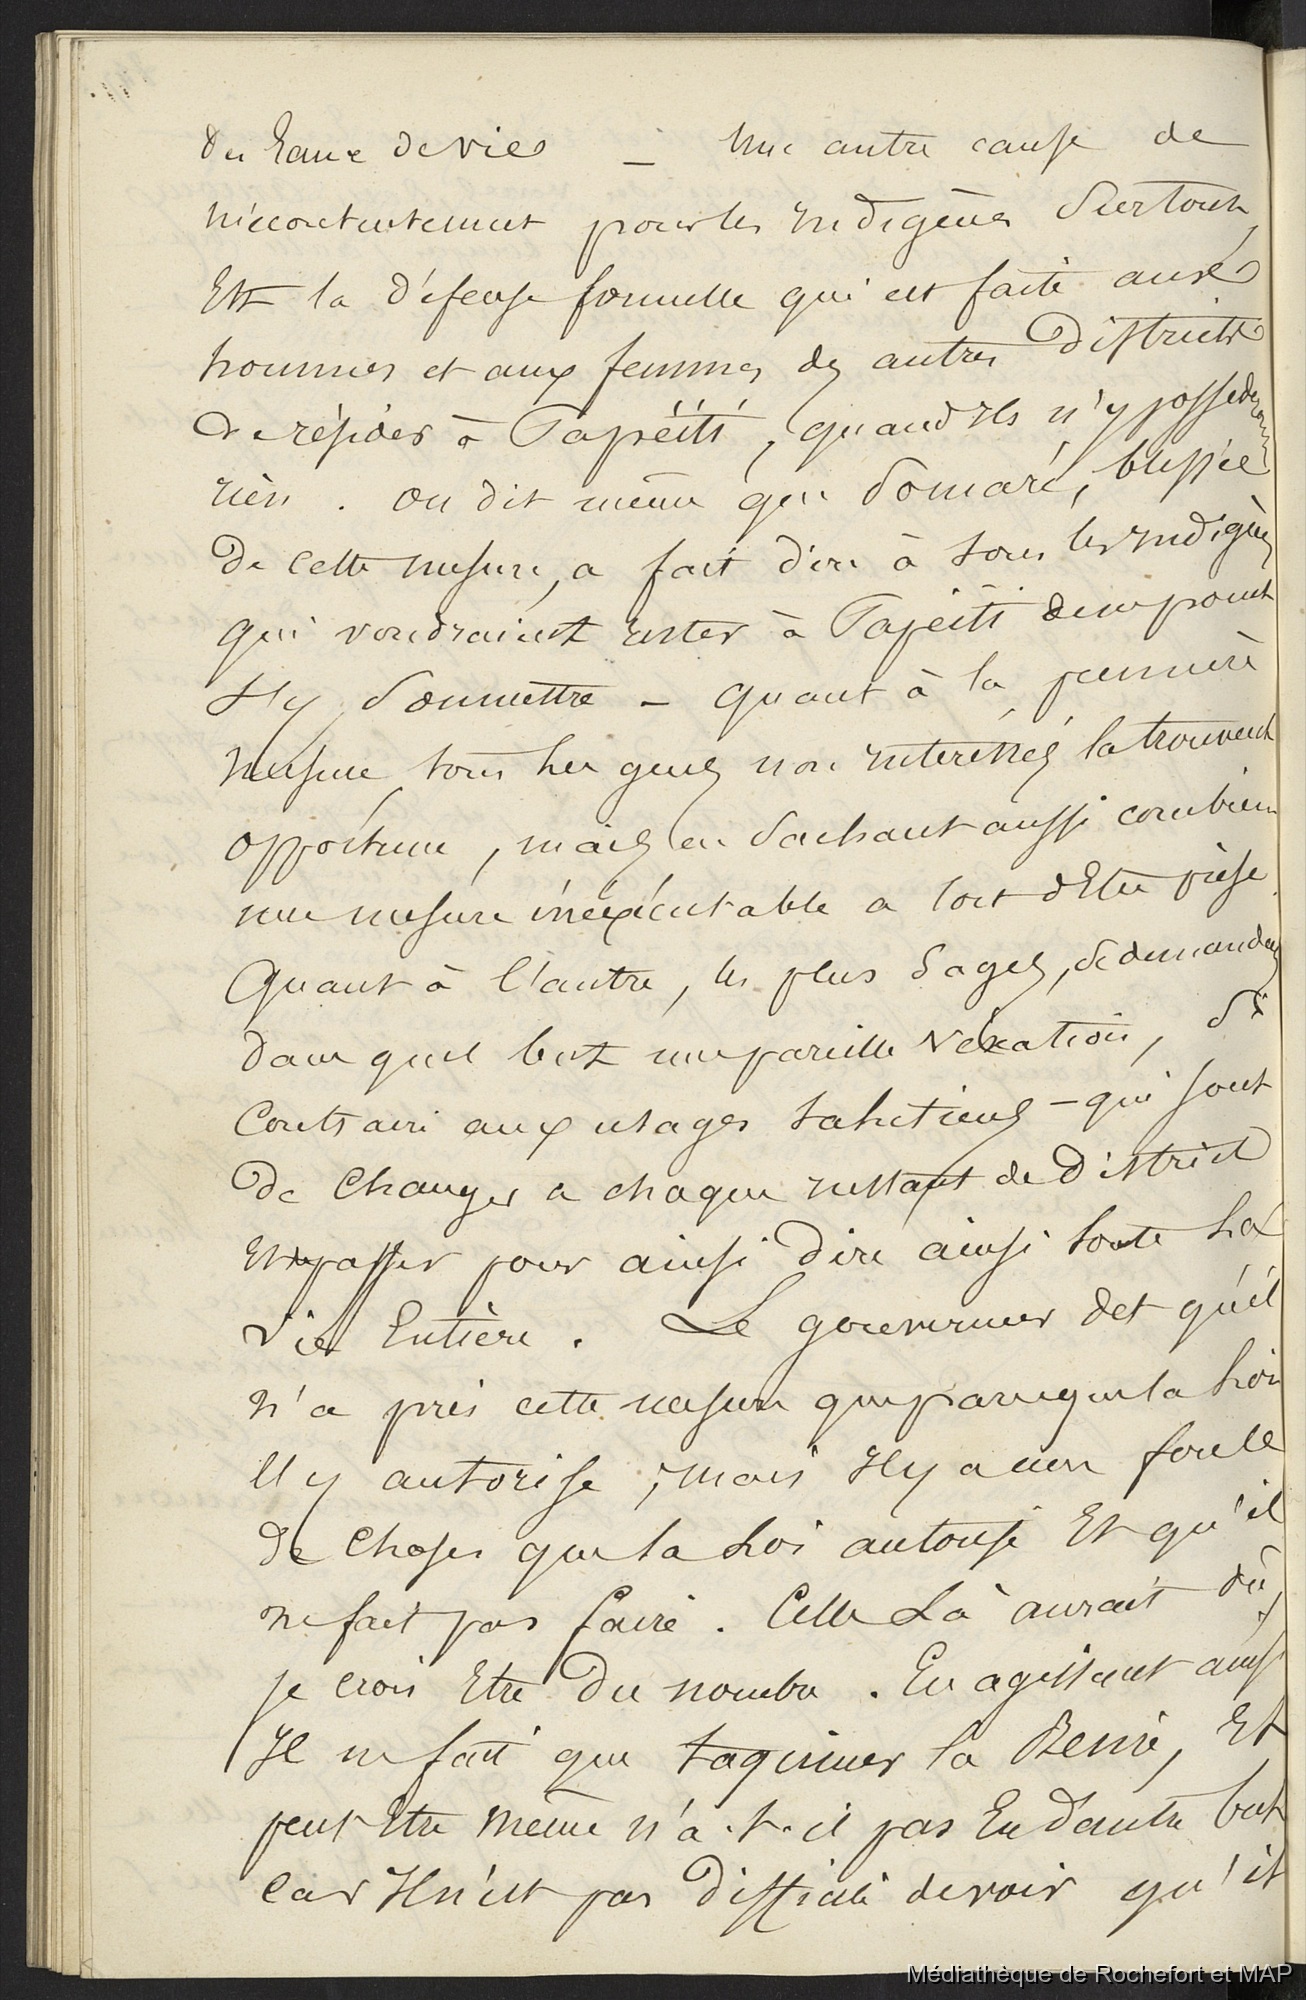 du Eaux de vies — Une autre cause de
mécontentement pour les indigènes surtout,
Est la défense formelle qui est faite aux
hommes et aux femmes des autres districts
de résider à Papéiti, quand ils n'y possèdent
rien. on dit même que Pomaré, blessée
de cette mesure, a fait dire à tous les indigènes
qui voudraient rester à Papéiti de ne point
s'y soumettre — quant à la première
mesure, tous les gens non intéressés la trouvent
opportune, mais en sachant aussi combien
une mesure inéxécutable a tort d'Etre prise.
Quant à l'autre, les plus sages, se demandent
dans quel but une pareille véxation, si
Contraire aux usages tahitiens — qui sont
de Changer a chaque instant de District
Et passer pour ainsi dire ainsi toute La
vie Entière. Le gouverneur dit qu'il
n'a pris cette mesure que parce que la Loi
l'y autorise, mais il y a une foule
de Choses que la Loi autorise Et qu'il
ne fait pas faire. Celle Là aurait dû,
je crois Etre du nombre. En agissant ainsi
Il ne fait que taquiner la Reine, Et
peut Etre même n'a-t-il pas En d'autre but
Car Il n'est pas difficile de voir qu'il
Médiathèque de Rochefort et MAP